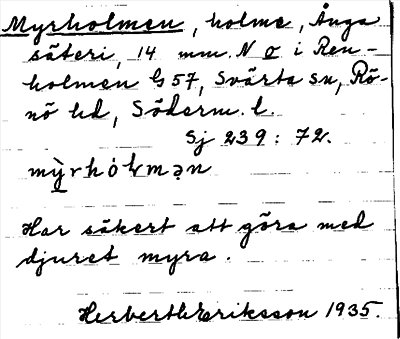 Myrholmen, holme, Ånga
säteri, 14 mm. N o i Ren-
holmen G 57, Svärta sn, Rö-
nö hd, Söderm. l.
Sj 239: 72.
Har säkert att göra med
djuret myra.
Herbert Eriksson 1935.